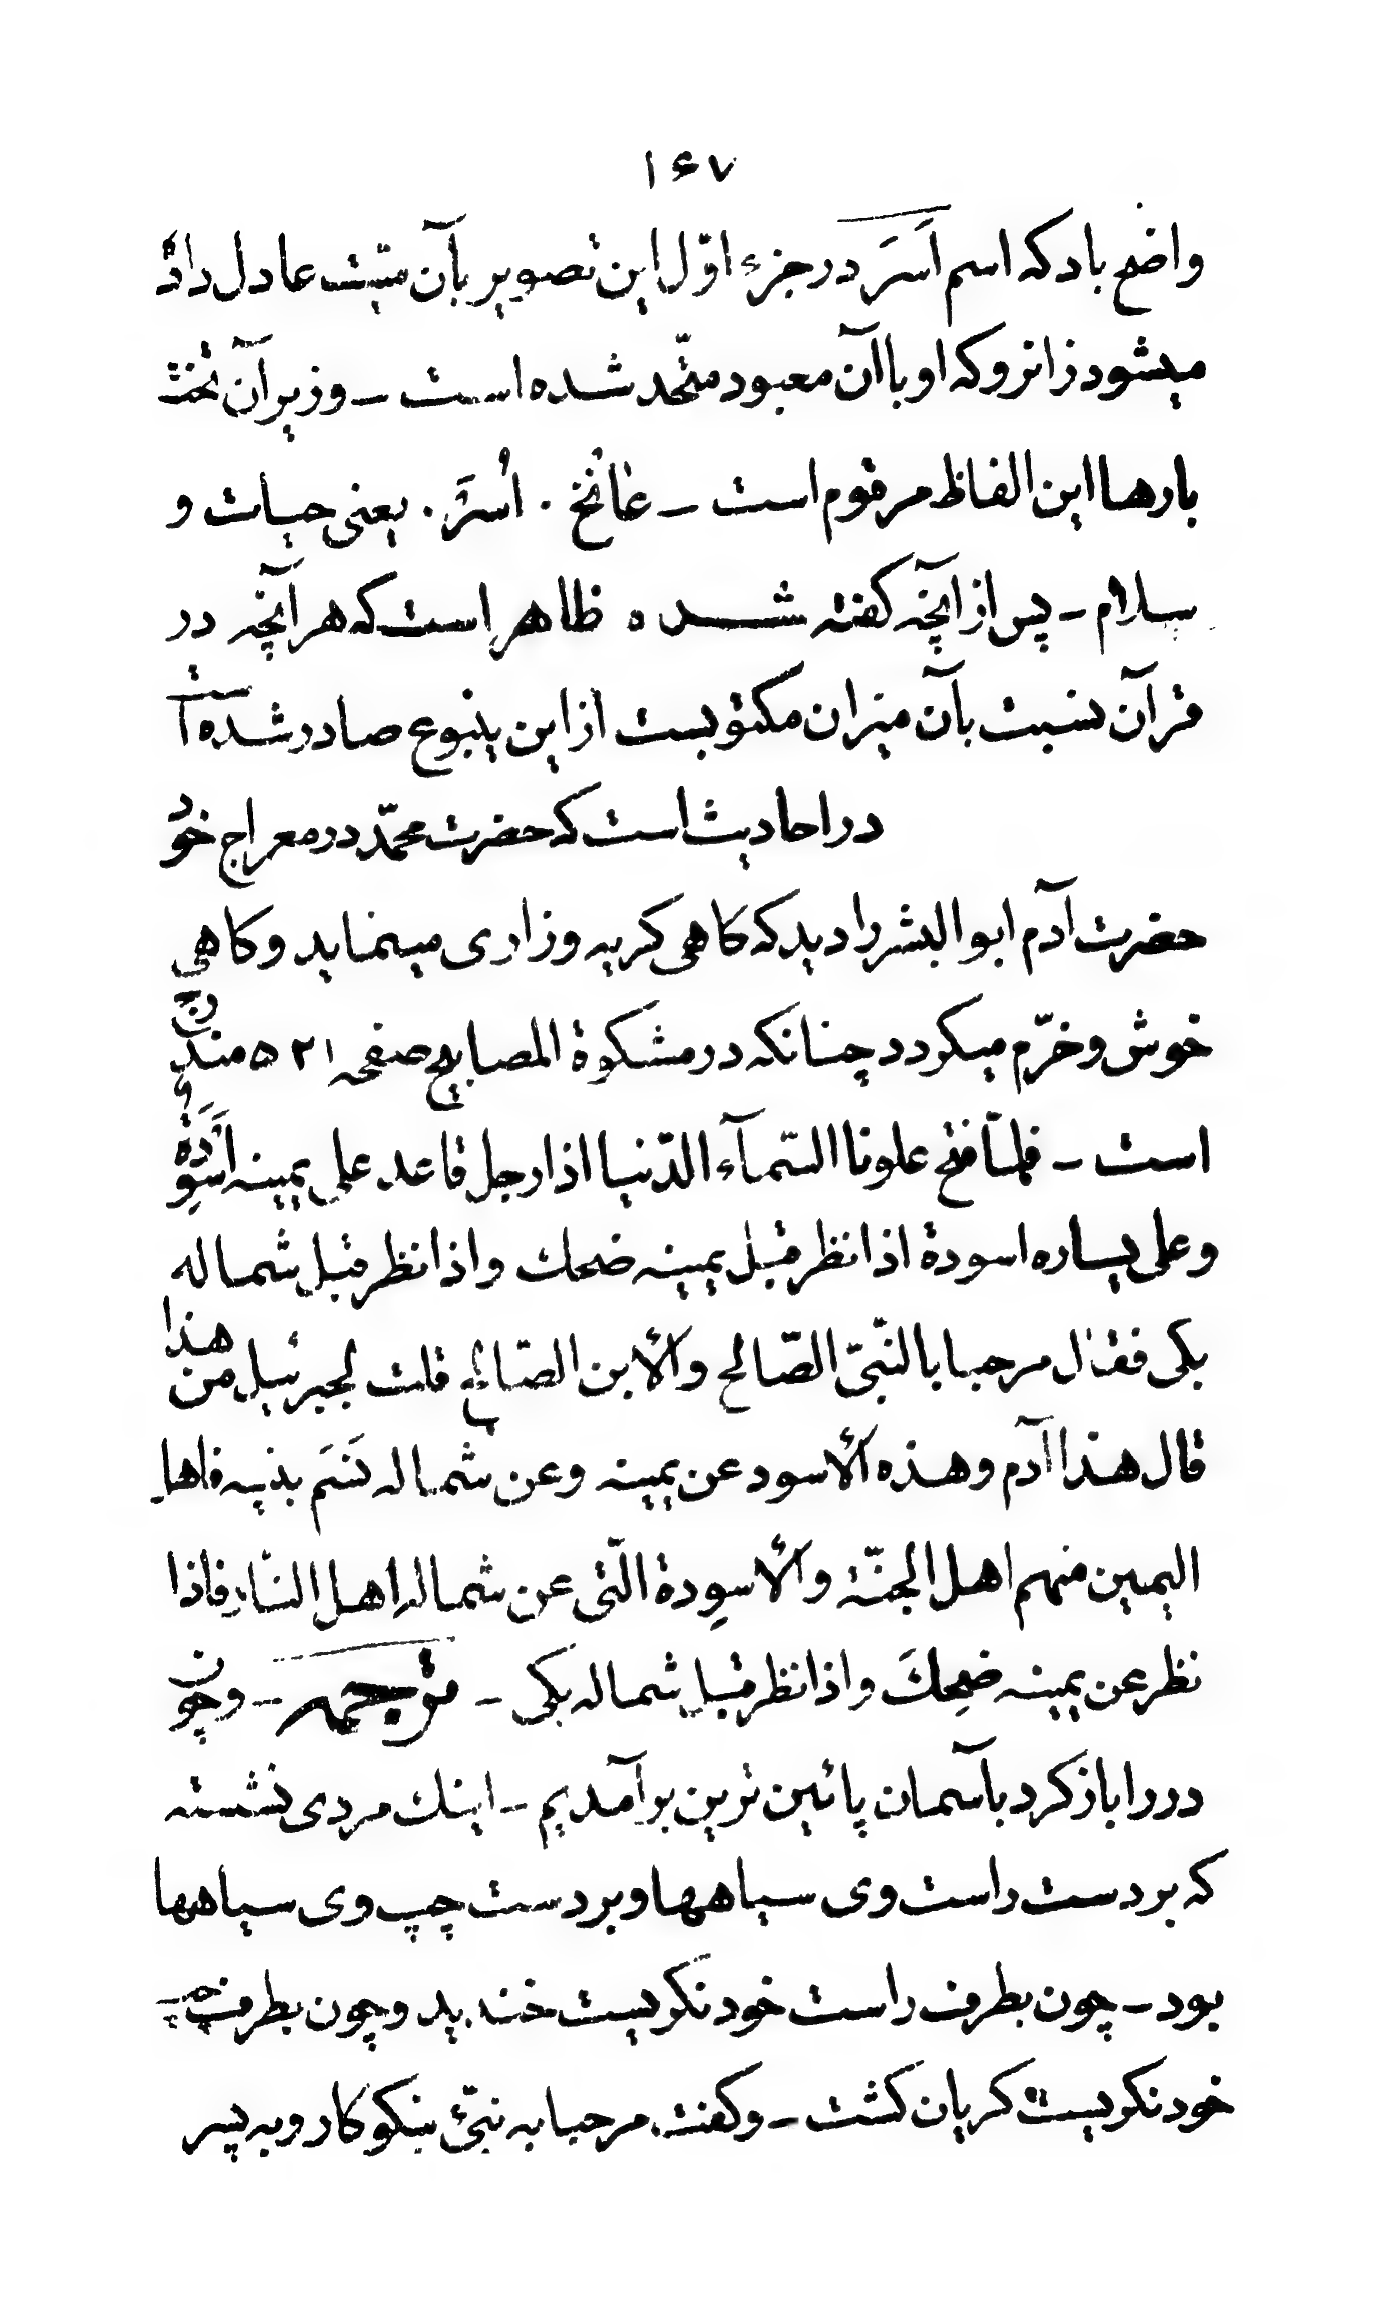 ۱۶۷
واضح باد که اسم اَسَرَ در جزء اوّل این تصویر بآن میّت عادل داده
میشود زانرو که او باآن معبود متّحد شده است – و زیر آن تخت
بارها این الفاظ مرقوم است – عانْخ . اُسَرَ . یعنی حیات و
سلام – پس از آنچه گفته شده ظاهر است که هر آنچه در
قرآن نسبت بآن میزان مکتوبست از این ینبوع صادر شده است
در احادیث است که حضرت محمّد در معراج خود
حضرت آدم ابو البشر را دید که کاهی کریه و زاری مینماید و کاهی
خوش و خرّم میکردد چنانکه در مشکوة المصابیح صفحه ۵۲۱ مندرج
است – فلمّا فتح علونا السّمآء الدّنیا اذا رجل قاعد علی یمینه اَسْوِدَةٌ
و علی یساره اسودة اذا نظر قبل یمینه ضحك و اذا نظر قبل شماله
بکی فقال مرحبا بالنّبیّ الصّالح والأبن الصّالح قلت لجبرئیل من هذا
قال هذا آدم و هذه الأسود عن یمینه و عن شماله نَسَم بنیه فاهل
الیمین منهم اهل الجنّة والأسوِدة الّتی عن شماله اهل النّار فاذا
نظر عن یمینه ضحِكَ و اذا نظر قبل شماله بکی – ترجمه – و چون
در را باز کرد بآسمان پائین ترین برآمدیم – اینك مردی نشسته
که بر دست راست وی سیاهها و بر دست چپ وی سیاهها
بود – چون بطرف راست خود نکریست خندید و چون بطرف چپ
خود نکریست کریان کشت – و کفت مرحبا به نبیّ نیکوکار و به پسر